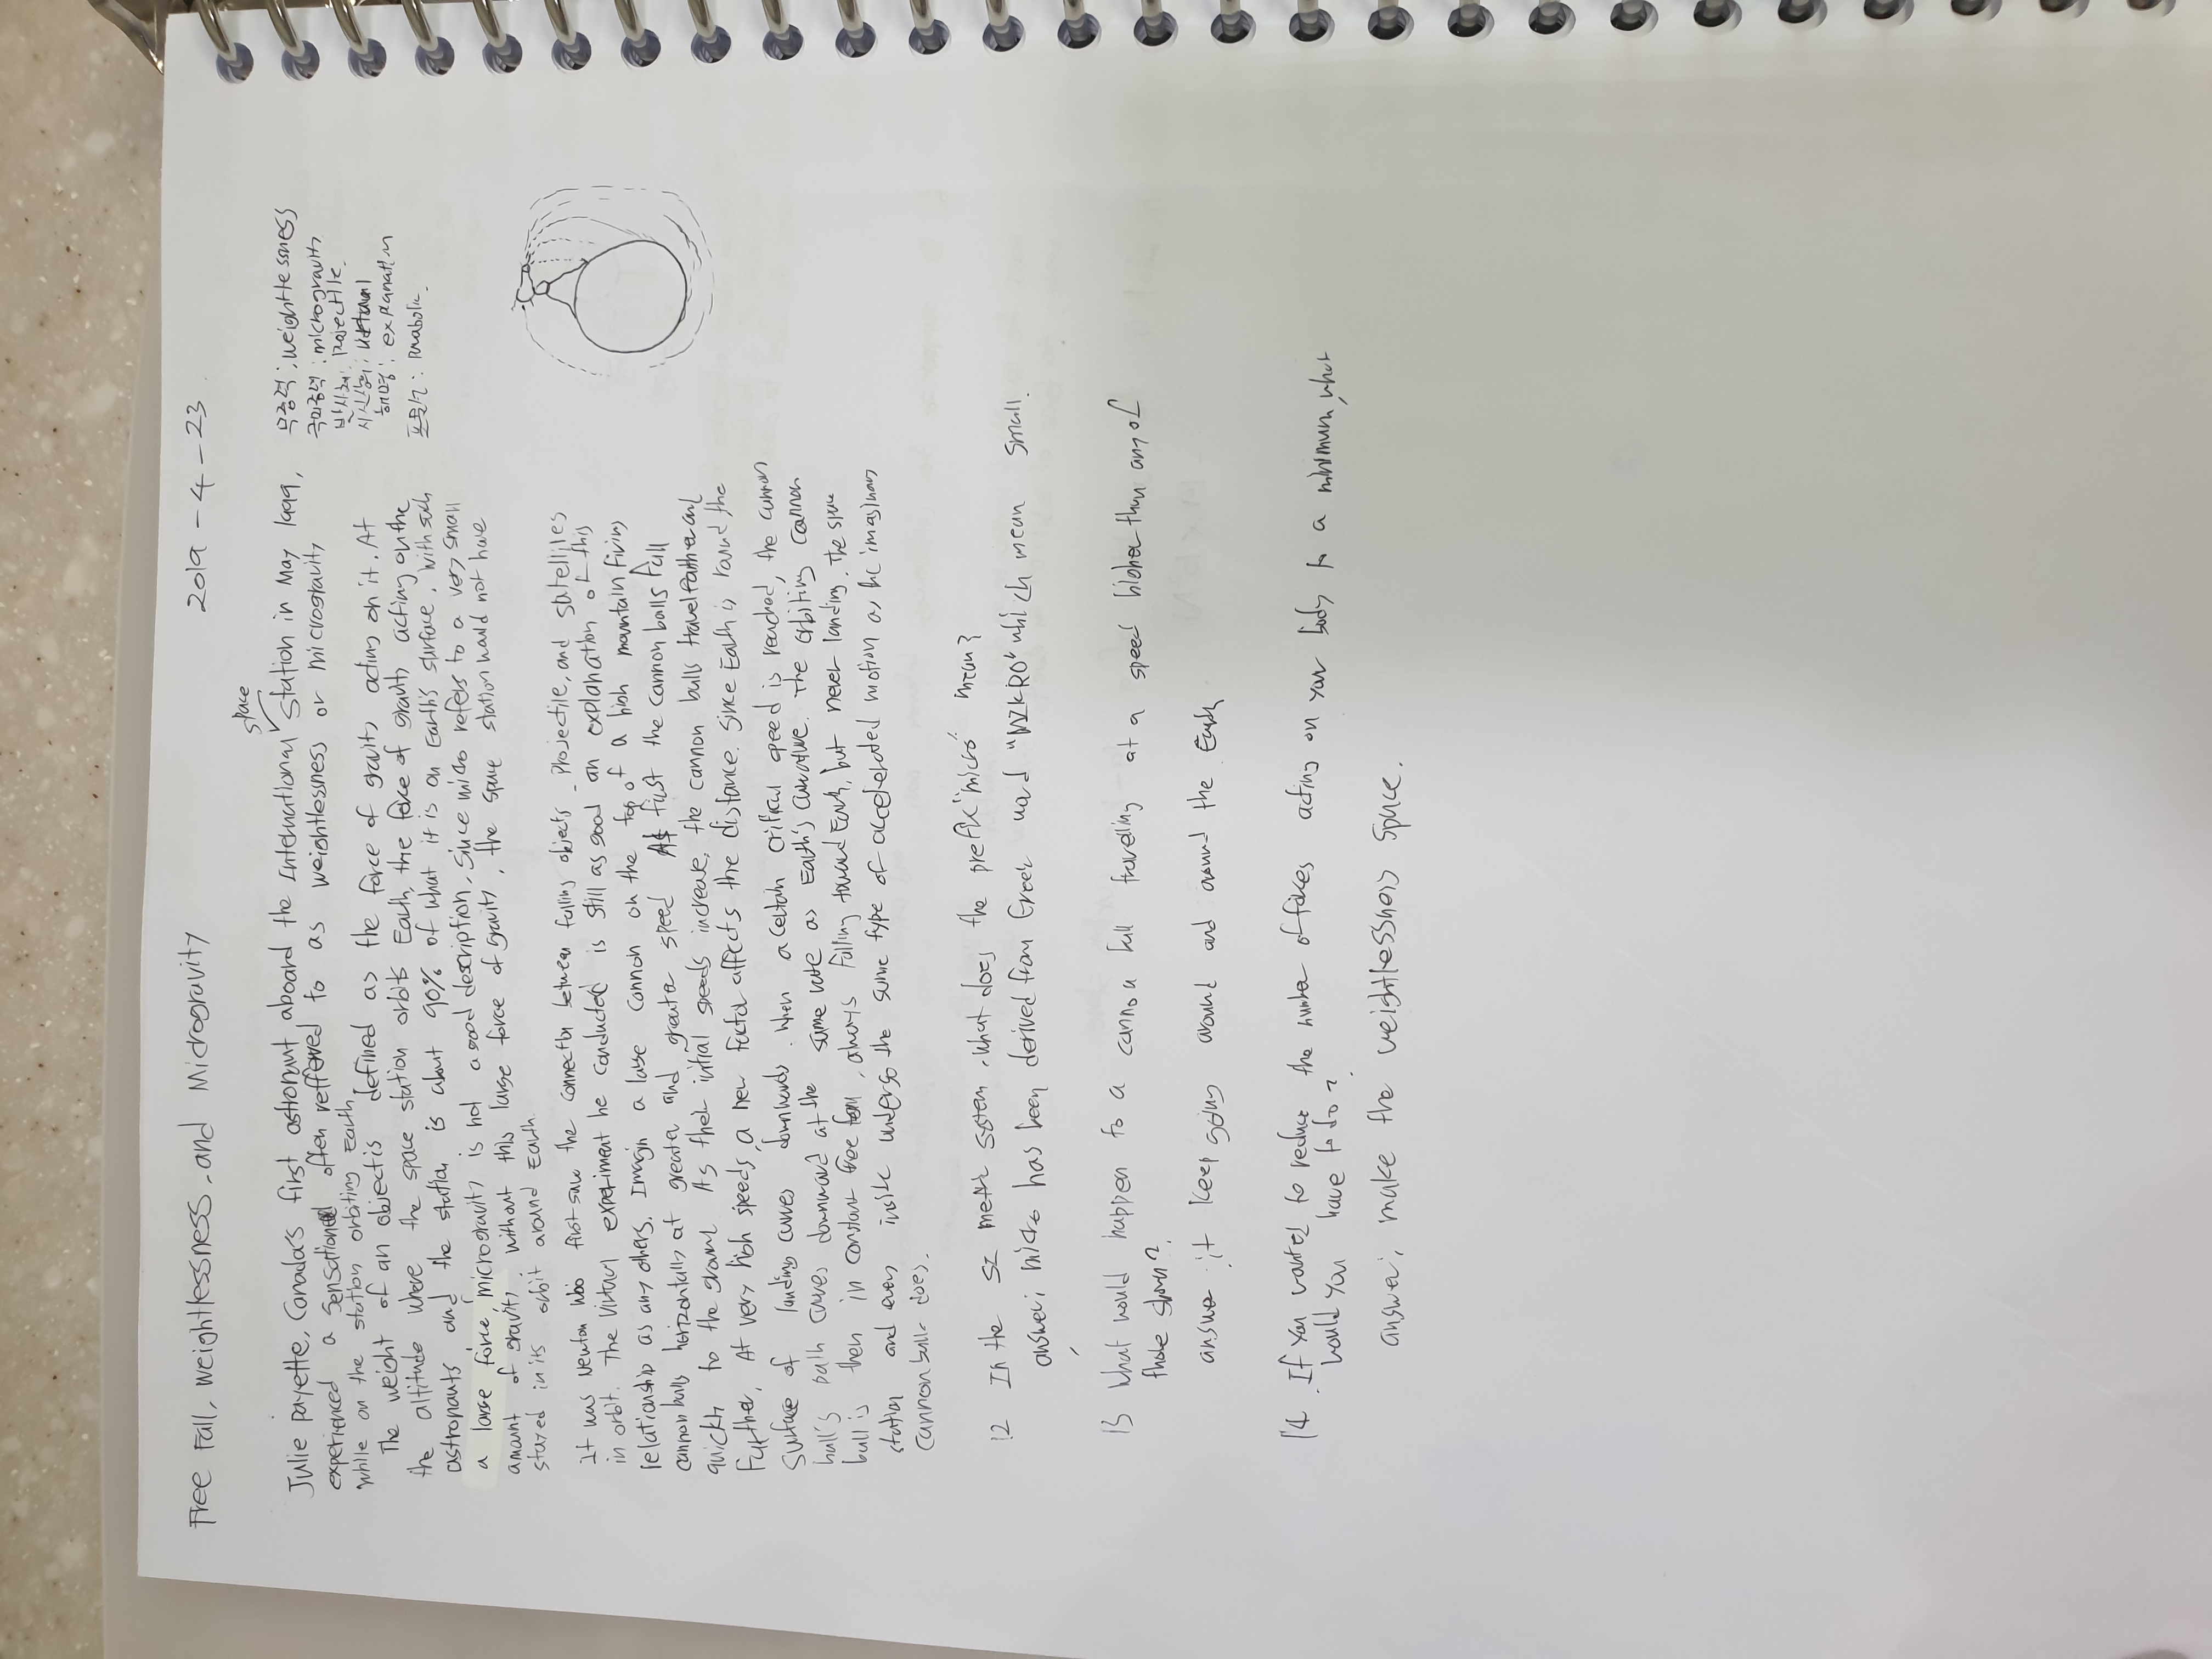 Free Fall, weightlessness, and Microgravity 2019 - 4 - 23
space
Julie payette, Canada's first astronaut aboard the International Station in May 1999,
experienced a sensation often reffered to as weightlessness or microgravity
while on the station orbiting Earth.
The weight of an object is defined as the force of gravity acting on it. At
the altitude where the space station orbits Earth, the force of gravity acting on the
astronauts and the station is about 90% of what it is on Earth's surface, with such
a large force, "microgravity is not a good description, since micro refers to a very small
amount of gravity without this large force of gravity, the space station would not have
stayed in its orbit around Earth
무중력 : weightlessness
극미중력 : microgravity
발사체 : projectile.
해명 : explanation
포물선 : parabolic.
It was Newton who first saw the connection between falling objects, projectile, and satellites
in orbit. The virtual experiment he conducted is still as good an explanation of this
relationship as any others. Imagin a large cannon on the top of a high mountain firing
cannon balls horizontally at greater and greater speed At first the cannon balls fall
quickly to the ground. As their initial speeds increase, the cannon balls travel farther and
further. At very high speeds, a new factor affects the distance. Since Earth is round the
surface of landing curves downwards. When a certain critical speed is reached, the cannon
ball's path curves downward at the same rate as Earth's curvature. The orbiting cannon
ball is then in constant free fall, always falling toward Earth, but never landing. The space
station and even inside undergo the same type of accelerated motion as he imaginary
cannon balls does.
12 In the SI metric system, what does the prefix "micro" mean?
answer: micro has been derived from Greek word "MIKRO" which mean small.
13 What would happen to a cannon ball travelling at a speed higher than any of
those shown?
answer : it keep going around and around the Earth
14. If you wanted to reduce the number of forces acting on your body to a minimum, what
would you have to do?
answer; make the weightlesshess space.